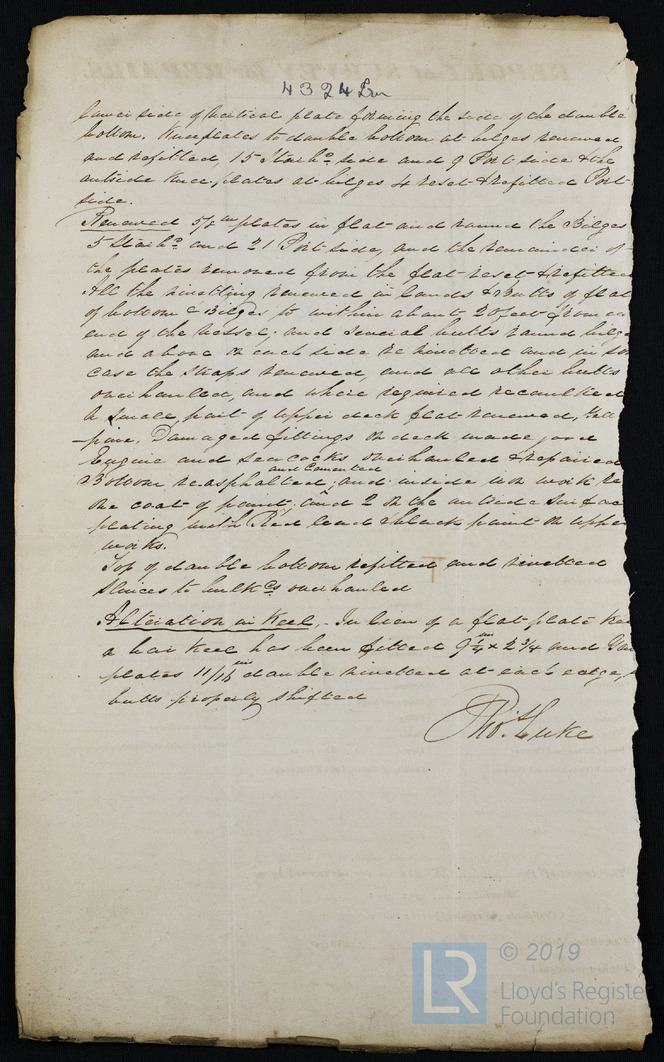 4324 Irn
lower side of vertical plate forming the side of the double
bottom. Knee plates to double bottom at bilges renewed
and refitted, 15 Starbd side and 9 Port side & the
outside knee plates at bilges 4 reset & refitted Port
side.
Renewed 5/8 in plates in flat and round the Bilges
5 Starbd and 21 Port side, and the remainder of
the plates removed from the flat reset & refitted
All the rivetting renewed in lands & Butts of flat
of bottom & Bilges to within about 20 feet from
end of the vessel; and several butts round bilge
and above on each side re rivetted and in
case the straps renewed, and all other butts
overhauled, and where required recaulked
A small part of upper deck flat renewed,
pine. Damaged fittings on deck made good
Engine and sea cocks overhauled & repaired
Bottom reasphalted and Cemented; and inside iron work
one coat of paint, and 2 on the outside surface
plating with Red lead & black paint on upper
works.
Top of double bottom refitted and rivetted
Sluices to bulkds overhauled
Alteration in Keel,- In lieu of a flat plate
a bar keel has been fitted 9 1/4 ins x 2 3/4 and
plates 11/16 ins double rivetted at each edge,
butts properly shifted
Thos. Luke
LR
© 2019
Lloyd's Register
Foundation